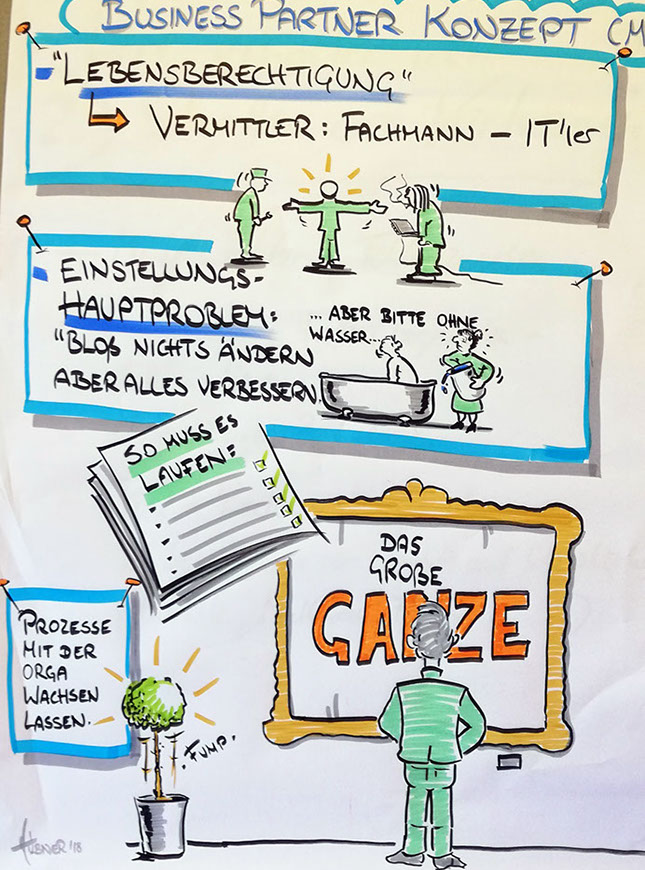 BUSINESS PARTNER KONZEPT (M
"LEBENSBERECHTIGUNG"
VERMITTLER: FACHMANN – IT'ler
EINSTELLUNGS-
HAUPTPROBLEM:
"BLOß NICHTS ÄNDERN
ABER ALLES VERBESSERN.
... ABER BITTE OHNE
WASSER...
SO MUSS ES
LAUFEN:
DAS
GROßE
GANZE
PROZESSE
MIT DER
ORGA
WACHSEN
LASSEN.
FUMP.
'18